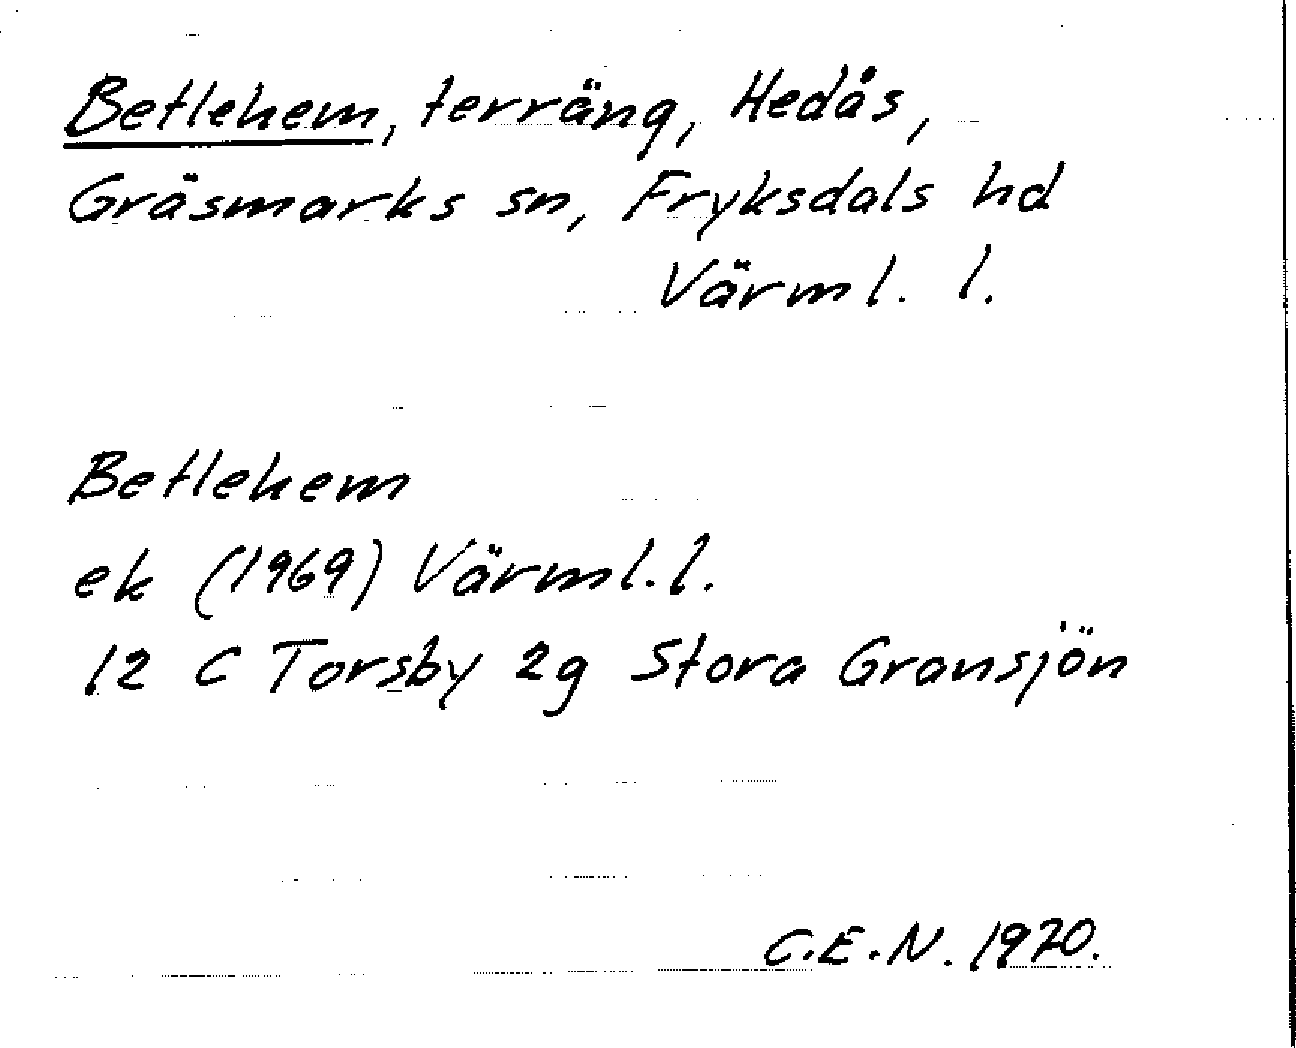 Betlehem, terräng, Hedås,
Gräsmarks sn, Fryksdals hd
Värml. l.
Betlehem
ek (1969) Värml. l.
12 C Torsby 2g Stora Gransjön
C.E.N. 1970.